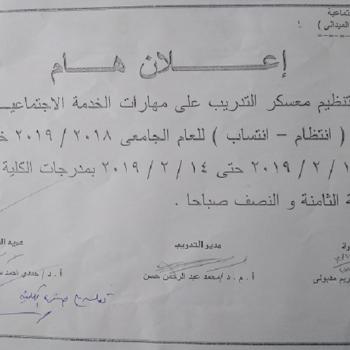 تماعية
الميداني )
إعــلان هــام
تنظيم معسكر التدريب على مهارات الخدمة الاجتماعيـ
( انتظام - انتساب ) للعام الجامعى ٢٠١٨ / ٢٠١٩ خـ
٢ / ٢٠١٩ حتى ١٤ / ٢ / ٢٠١٩ بمدرجات الكلية
ة الثامنة و النصف صباحا .
مدير التدريب
أ . م . د / محمد عبد الرحمن حسن
أ . د / حمدى احمد